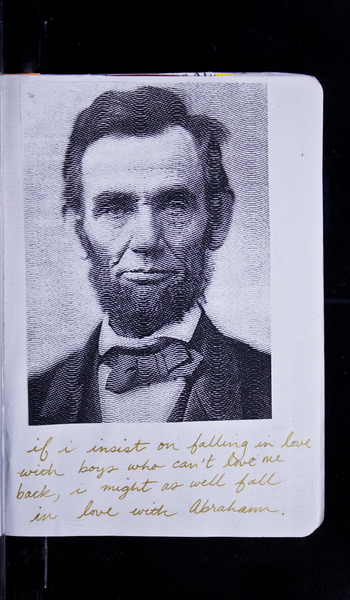 if i insist on falling in love
with boys who can't love me
back, i might as well fall
in love with Abraham.